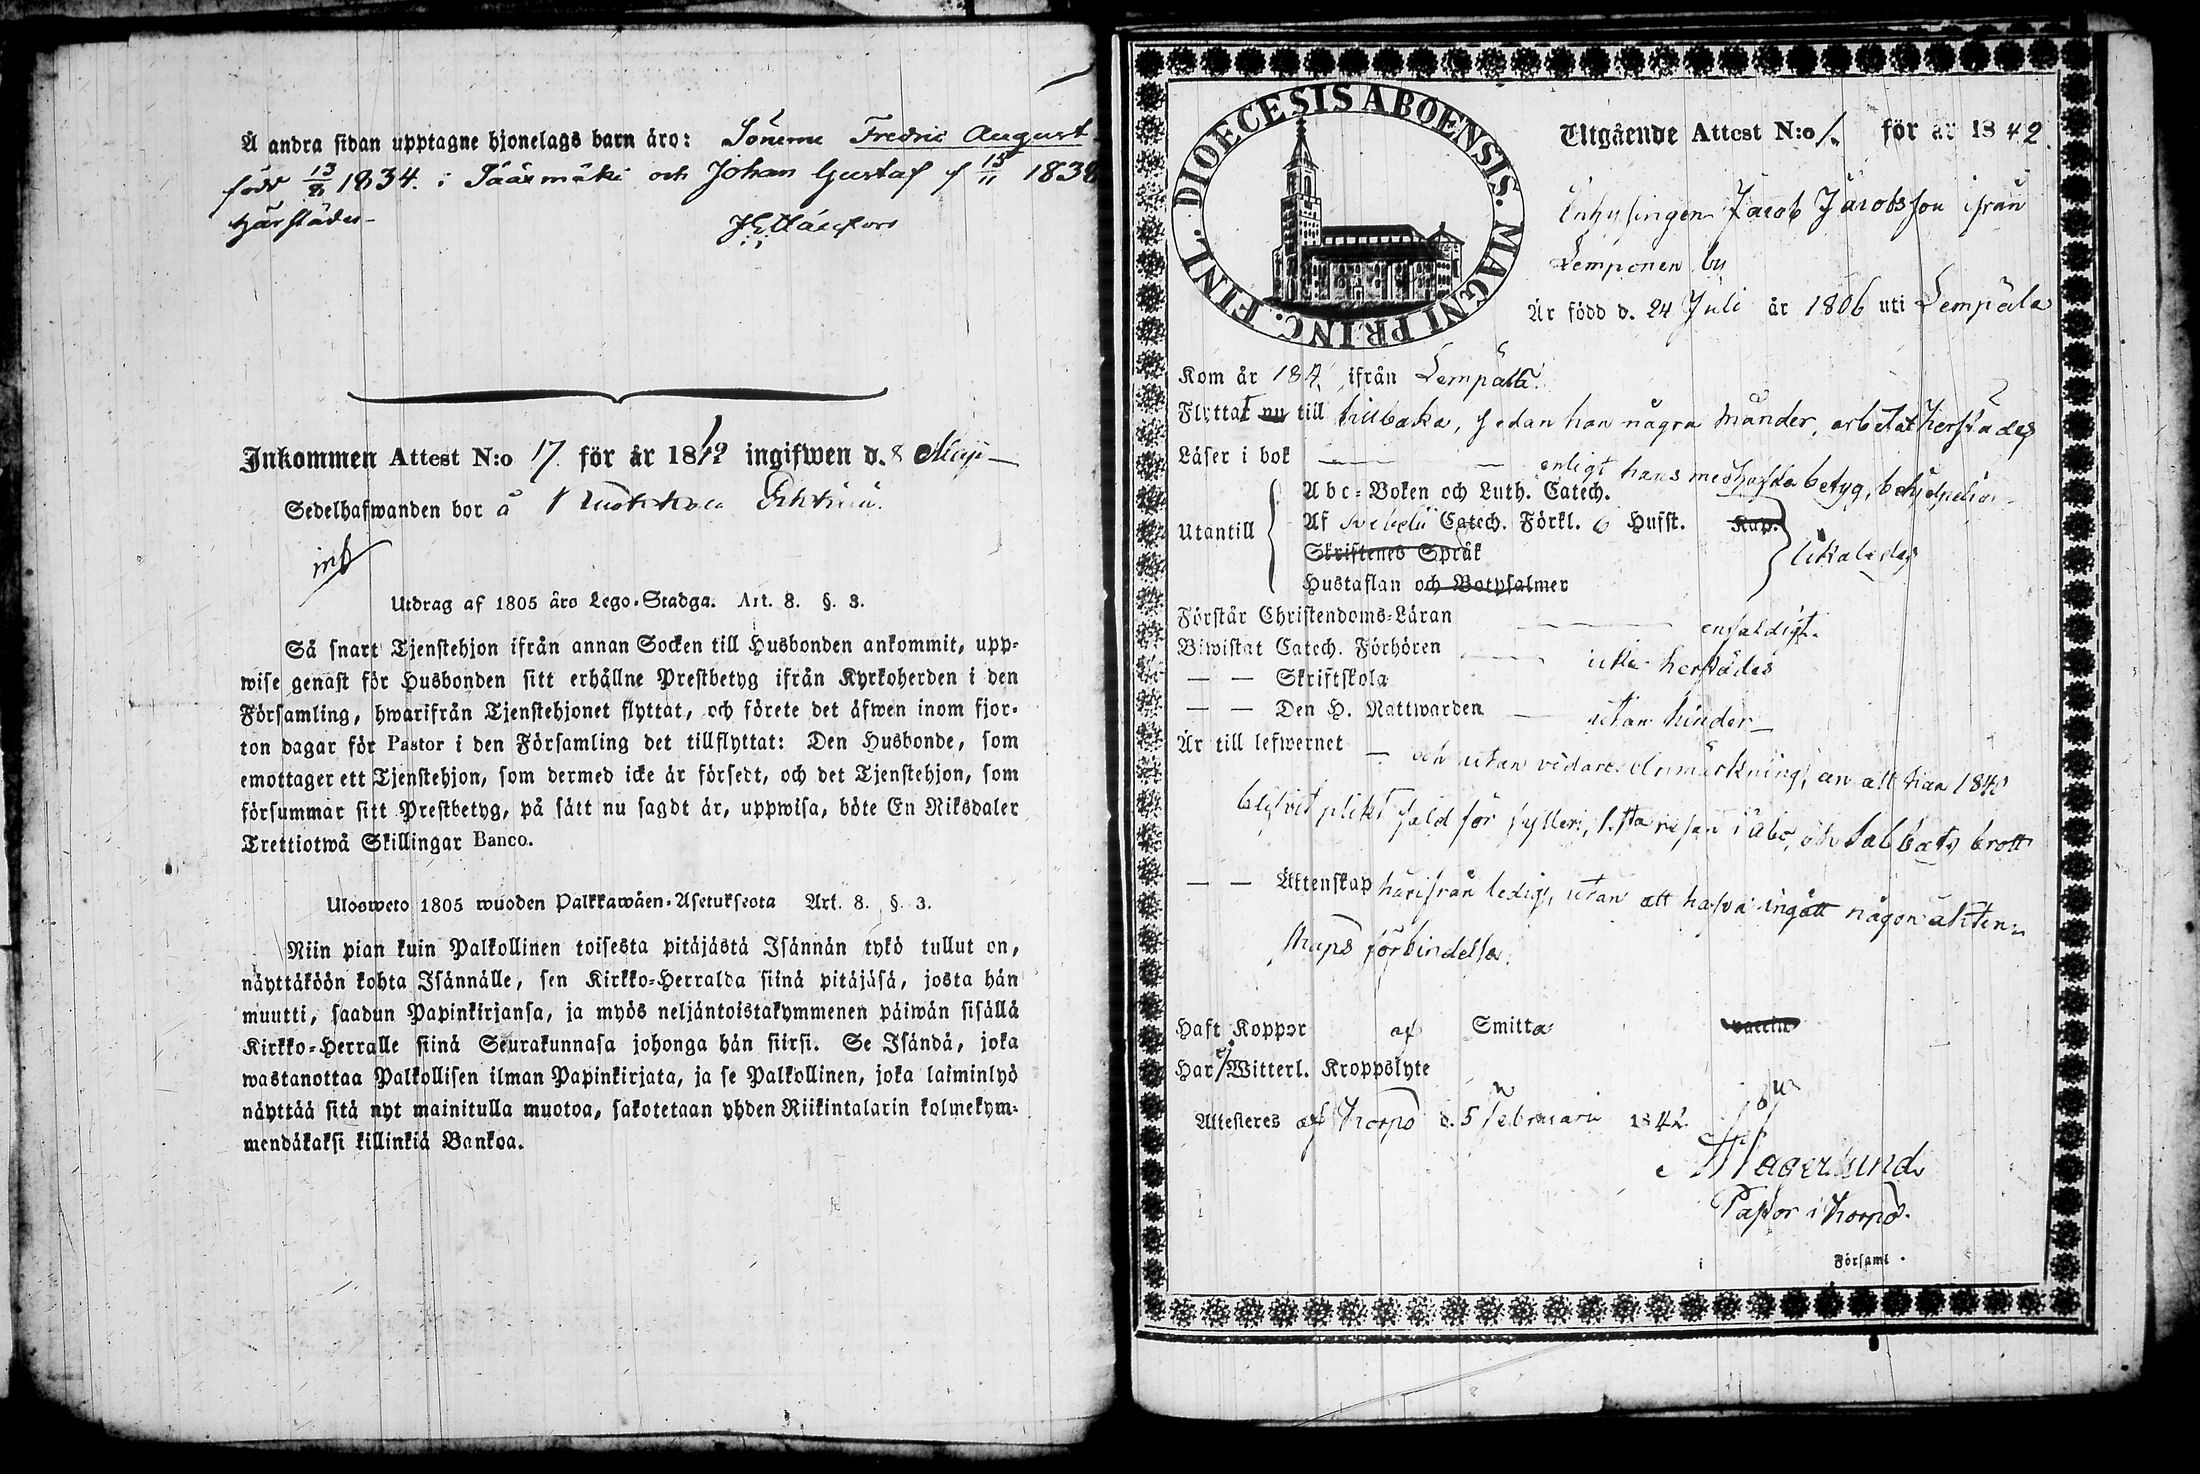 Å andra sidan upptagne hjonelags barn äro: Sönerne Fredric August
född 13/8 1834. i Sääxmäki och Johan Gustaf f 15/11 1838
härstädes
Inkommen Attest N:o 17. för år 1842 ingifwen d. 8 Maji
Sedelhafwanden bor å
inf
Utdrag af 1805 års Lego-Stadga. Art. 8. §. 3.
Så snart Tjenstehjon ifrån annan Socken till Husbonden ankommit, upp-
wise genast för Husbonden sitt erhållne Prestbetyg ifrån Kyrkoherden i den
Församling, hwarifrån Tjenstehjonet flyttat, och förete det äfwen inom fjor-
ton dagar för Pastor i den Församling det tillflyttat: Den Husbonde, som
emottager ett Tjenstehjon, som dermed icke är försedt, och det Tjenstehjon, som
försummar sitt Prestbetyg, på sätt nu sagdt är, uppwisa, böte En Riksdaler
Trettiotwå Skillingar Banco.
Ulosweto 1805 wuoden Palkkawäen-Asetuksesta Art. 8. §. 3.
Niin pian kuin Palkollinen toisesta pitäjästä Isännän tykö tullut on,
näyttäköön kohta Isännälle, sen Kirkko-Herralda siinä pitäjäsä, josta hän
muutti, saadun Papinkirjansa, ja myös neljäntoistakymmenen päiwän sisällä
Kirkko-Herralle siinä Seurakunnasa johonga hän siirsi. Se Isändä, joka
wastanottaa Palkollisen ilman Papinkirjata, ja se Palkollinen, joka laiminlyö
näyttää sitä nyt mainitulla muotoa, sakotetaan yhden Riikintalarin kolmekym-
mendäkaksi killinkiä Bankoa.
DIOECESIS ABOENSIS. MAGNI PRINC. FINL.
Utgående Attest N:o 1. för år 1842.
Inhysingen Jacob Jacobsson ifrån
Lemponen by
Är född d. 24 Juli år 1806 uti Lempäla
Kom år 184 ifrån Lempäla
Flyttat nu till tillbaka, sedan han några månder arbetat herstädes
Läser i bok — — enligt hans medhafda betyg, behjelpeligen
Utantill
Abc-Boken och Luth. Catech.
Af Svebelii Catech. Förkl. 6 Hufst. Kap.
Skriftenes Språk
likaledes
Hustaflan och Botpsalmer
Förstår Christendoms-Läran — enfaldigt.
Biwistat Catech. Förhören — icke herstädes
— — Skriftskola
— — Den H. Nattwarden — utan hinder
Är till lefwernet — och utan vidare Anmärkning, än att han 1840
blifvit pliktfäld för fylleri, 1:sta resan i Åbo, och Sabbats brott
— — Äktenskap härifrån ledig, utan att hafva ingått någon äkten-
skaps förbindelse.
Haft Koppor af Smitta vaccin
Har ej Witterl. Kroppslyte
Attesteras af Korpo d. 5 Februarii 1842.
Magerlund
Pastor i Korpo.
i Församl.